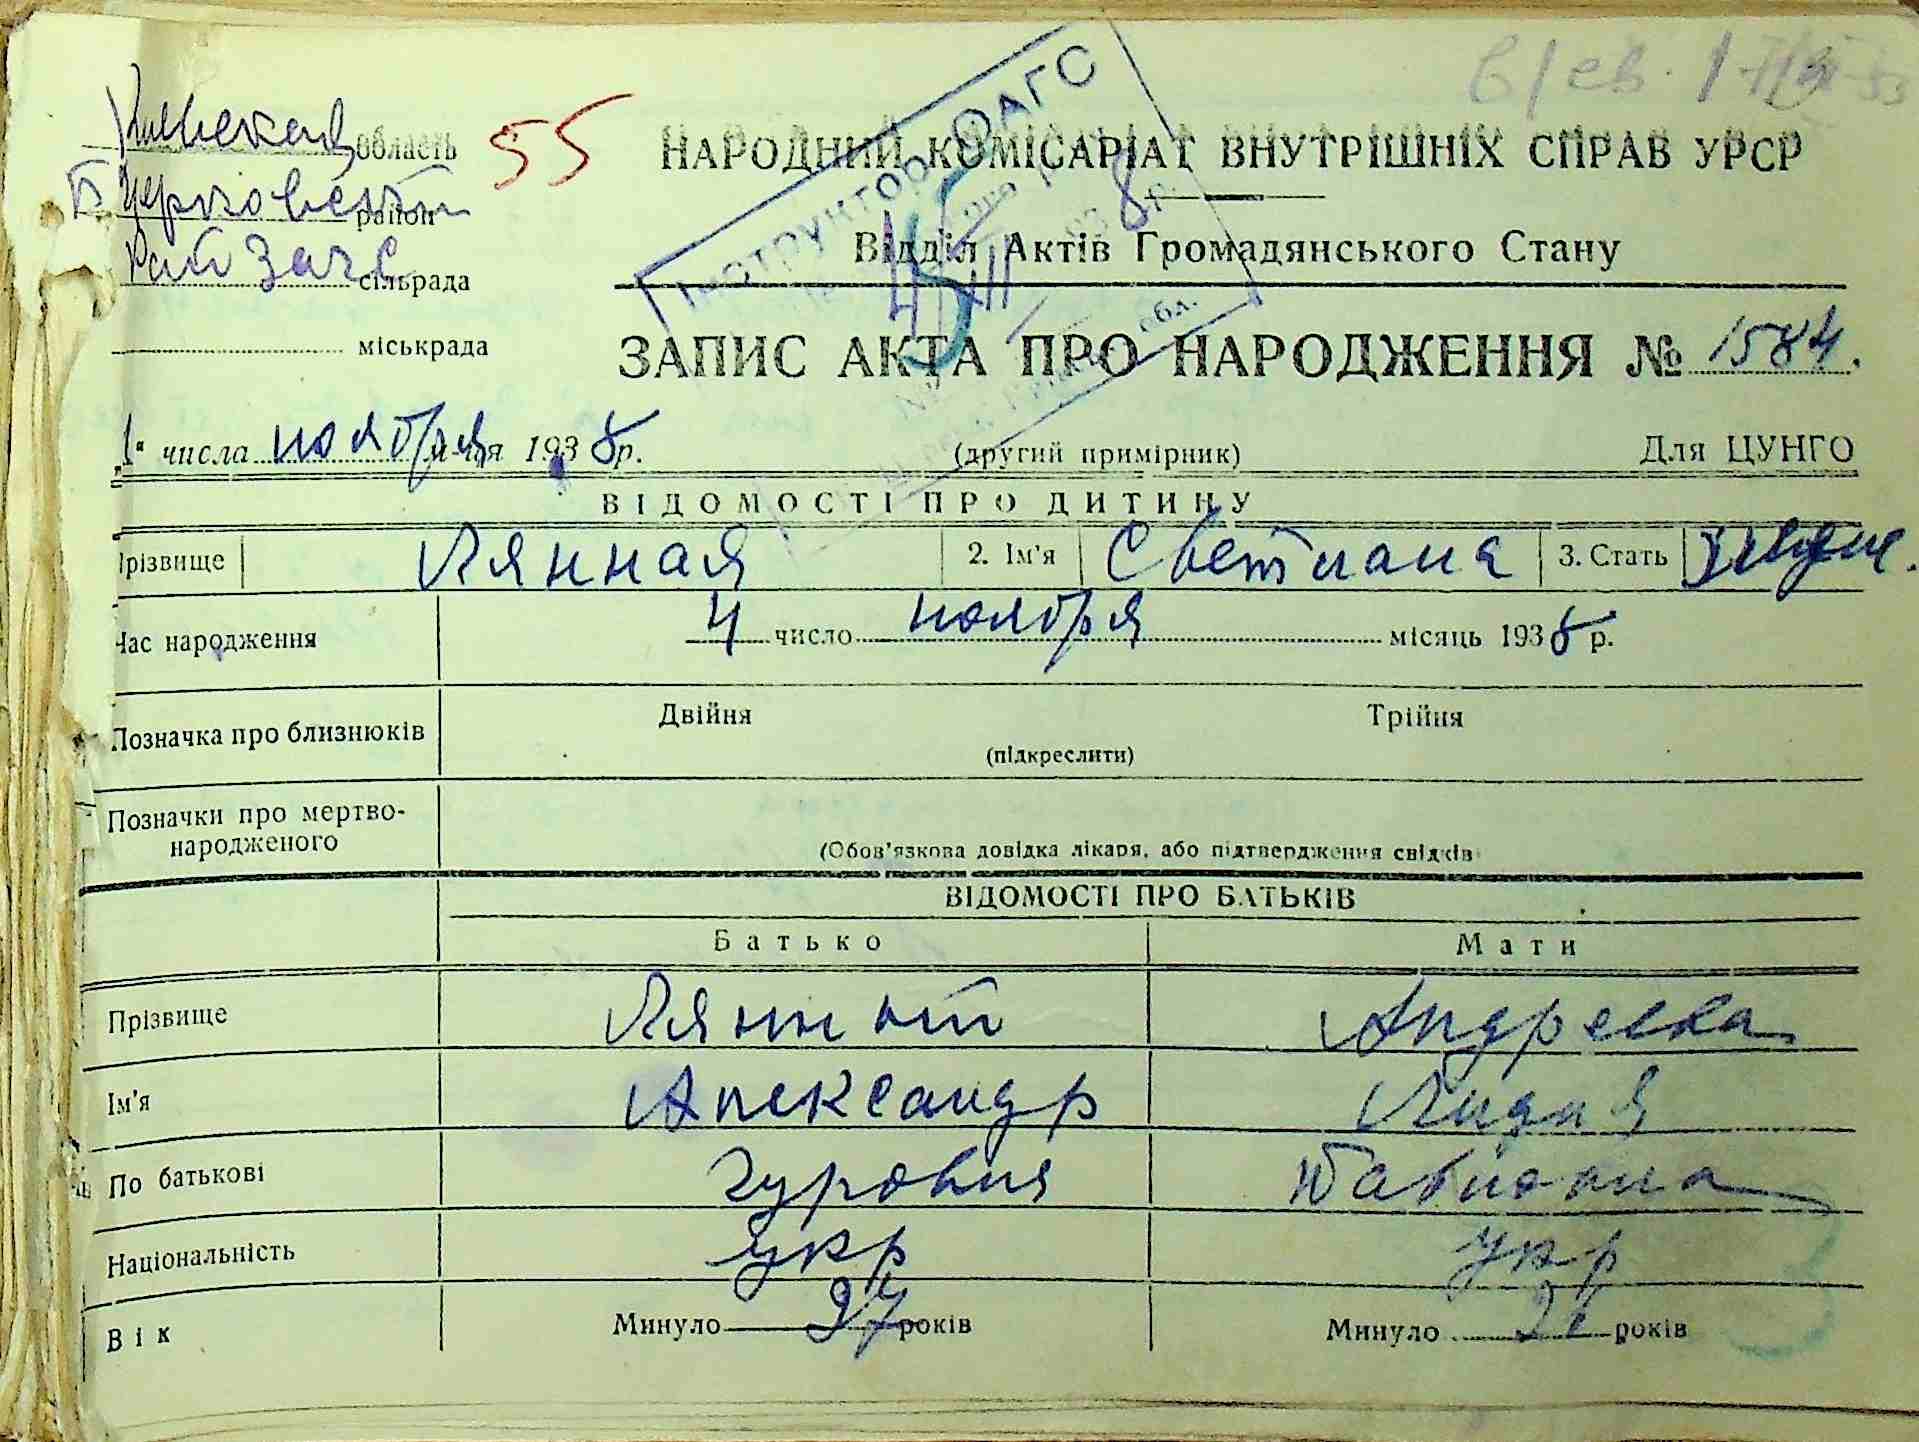 Киевская область
55
НАРОДНИЙ КОМІСАРІАТ ВНУТРІШНІХ СПРАВ УРСР
Б Церковский район
Відділ Актів Громадянського Стану
РайЗагс сільрада
міськрада
ІНСТРУКТОР ОАГС
8 р.
обл.
ЗАПИС АКТА ПРО НАРОДЖЕННЯ № 1584.
числа ноября м-ця 1938 р.
(другий примірник)
Для ЦУНГО
ВІДОМОСТІ ПРО ДИТИНУ
Прізвище Лянная 2. Ім'я Светлана 3. Стать
Час народження 4 число ноября місяць 1938 р.
Позначка про близнюків Двійня Трійня
(підкреслити)
Позначки про мертво-
народженого
(Обов'язкова довідка лікаря, або підтвердження свідків
ВІДОМОСТІ ПРО БАТЬКІВ
Батько Мати
Прізвище Лянной Андреева
Ім'я Александр Лидия
По батькові Гурович
Національність Укр Укр
Вік Минуло 27 років Минуло років